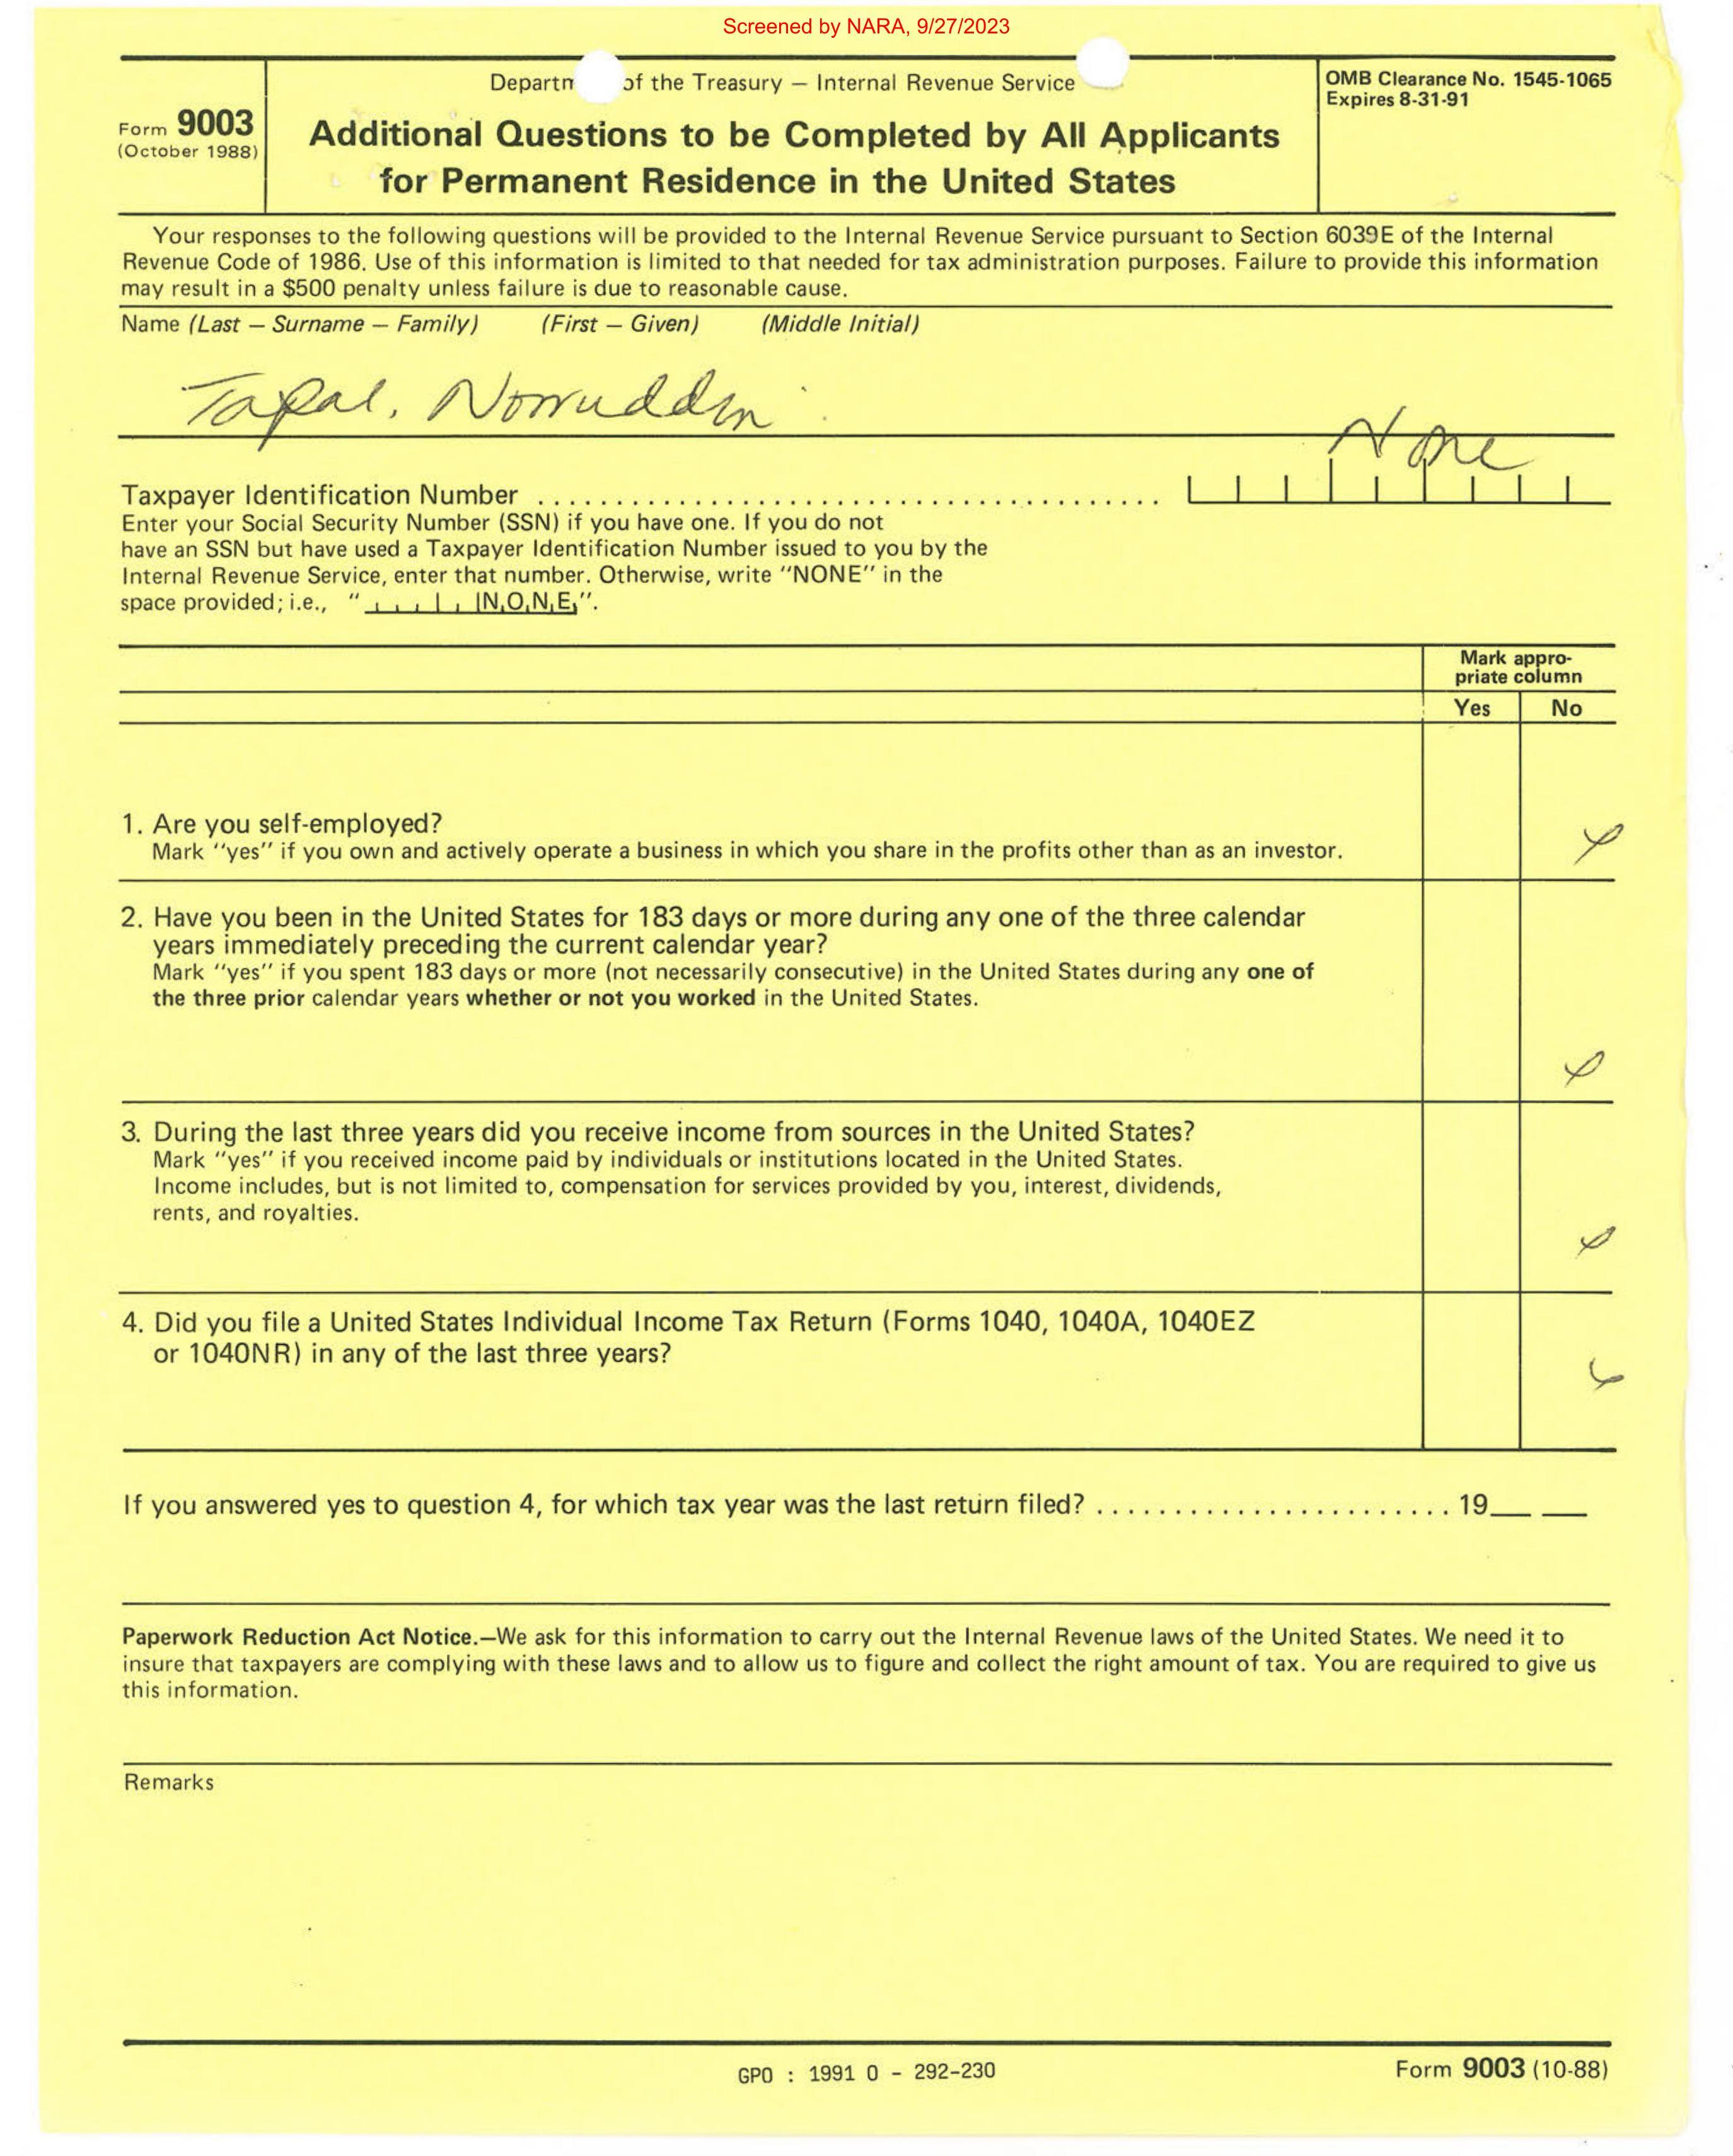 Screened by NARA, 9/27/2023
Departm of the Treasury — Internal Revenue Service
OMB Clearance No. 1545-1065
Expires 8-31-91
Form 9003
(October 1988)
Additional Questions to be Completed by All Applicants
for Permanent Residence in the United States
Your responses to the following questions will be provided to the Internal Revenue Service pursuant to Section 6039E of the Internal
Revenue Code of 1986. Use of this information is limited to that needed for tax administration purposes. Failure to provide this information
may result in a $500 penalty unless failure is due to reasonable cause.
Name (Last — Surname — Family) (First — Given) (Middle Initial)
Tapal, Norruddin
None
Taxpayer Identification Number
Enter your Social Security Number (SSN) if you have one. If you do not
have an SSN but have used a Taxpayer Identification Number issued to you by the
Internal Revenue Service, enter that number. Otherwise, write "NONE" in the
space provided; i.e., " N O N E ".
Mark appro-
priate column
Yes No
1. Are you self-employed?
Mark "yes" if you own and actively operate a business in which you share in the profits other than as an investor.
2. Have you been in the United States for 183 days or more during any one of the three calendar
years immediately preceding the current calendar year?
Mark "yes" if you spent 183 days or more (not necessarily consecutive) in the United States during any one of
the three prior calendar years whether or not you worked in the United States.
3. During the last three years did you receive income from sources in the United States?
Mark "yes" if you received income paid by individuals or institutions located in the United States.
Income includes, but is not limited to, compensation for services provided by you, interest, dividends,
rents, and royalties.
4. Did you file a United States Individual Income Tax Return (Forms 1040, 1040A, 1040EZ
or 1040NR) in any of the last three years?
If you answered yes to question 4, for which tax year was the last return filed? 19__ __
Paperwork Reduction Act Notice.—We ask for this information to carry out the Internal Revenue laws of the United States. We need it to
insure that taxpayers are complying with these laws and to allow us to figure and collect the right amount of tax. You are required to give us
this information.
Remarks
GPO : 1991 O - 292-230
Form 9003 (10-88)